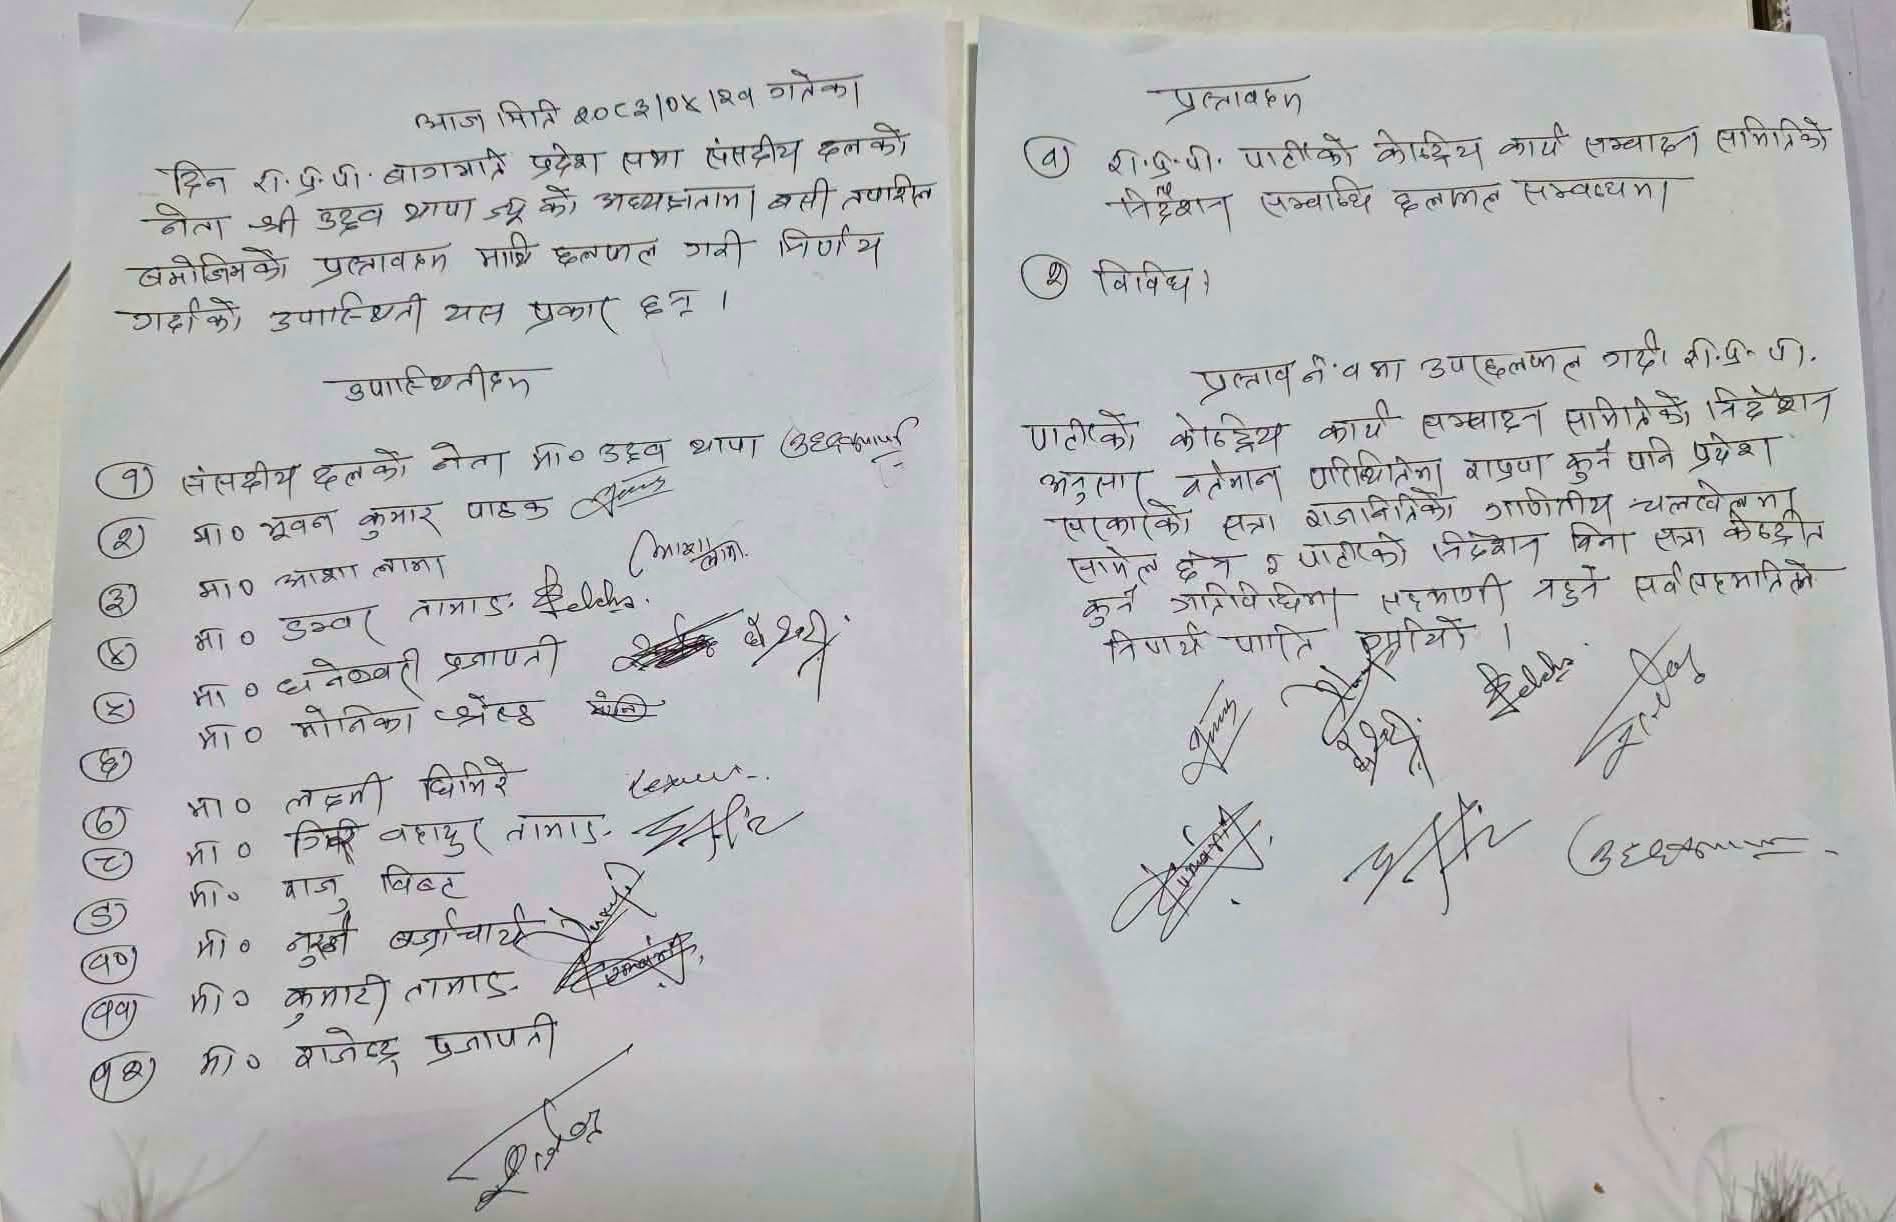 आज मिति २०८३।०४।२१ गतेका
दिन रा.प्र.पा. बागमति प्रदेश सभा संसदीय दलको
नेता श्री उद्धव थापा ज्यू को अध्यक्षतामा बसी तपाशिल
बमोजिमको प्रस्तावहरु माथि छलफल गरी निर्णय
गर्दाको उपास्थिती यस प्रकार छन् ।
उपास्थितीहरु
१ संसदीय दलको नेता मा० उद्धव थापा
२ मा० भूवन कुमार पाठक
३ मा० आशा लामा आशा लामा
४ मा० डम्वर तामाङ
५ मा० धनेश्वरी प्रजापती
६ मा० मोनिका श्रेष्ठ
७ मा० लक्ष्मी घिमिरे
८ मा० वहादुर तामाङ
९ मा० राजु विष्ट
१० मा० बज्राचार्य
११ मा० कुमारी तामाङ
१२ मा० राजेन्द्र प्रजापती
प्रस्तावहरु
१ रा.प्र.पा. पार्टीको केन्द्रिय कार्य सम्पादन समितिको
निर्देशन सम्वान्धि छलफल सम्वन्धमा
२ विविध ।
प्रस्ताव नं. १ मा उपर छलफल गर्दा रा.प्र.पा.
पार्टीको केन्द्रिय कार्य सम्पादन समितिको निर्देशन
अनुसार वर्तमान परिस्थितिमा राप्रपा कुनै पनि प्रदेश
सरकारको सत्ता राजनितिको गणितीय चलखेलमा
सामेल हुने र पार्टीको निर्देशन विना सत्ता केन्द्रीत
कुनै गतिविधिमा सहभागी नहुने सर्वसहमतिले
निर्णय पारित गरियो ।